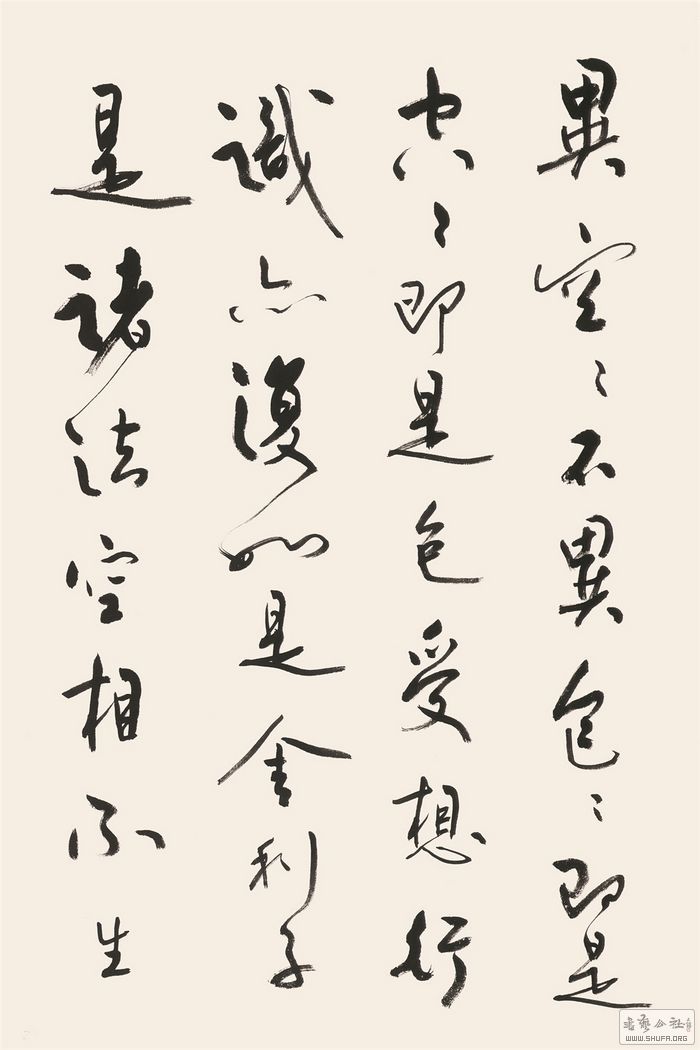 異空〻不異色〻即是
空〻即是色受想行
識亦復如是舍利子
是諸法空相不生
書藝公社
WWW.SHUFA.ORG